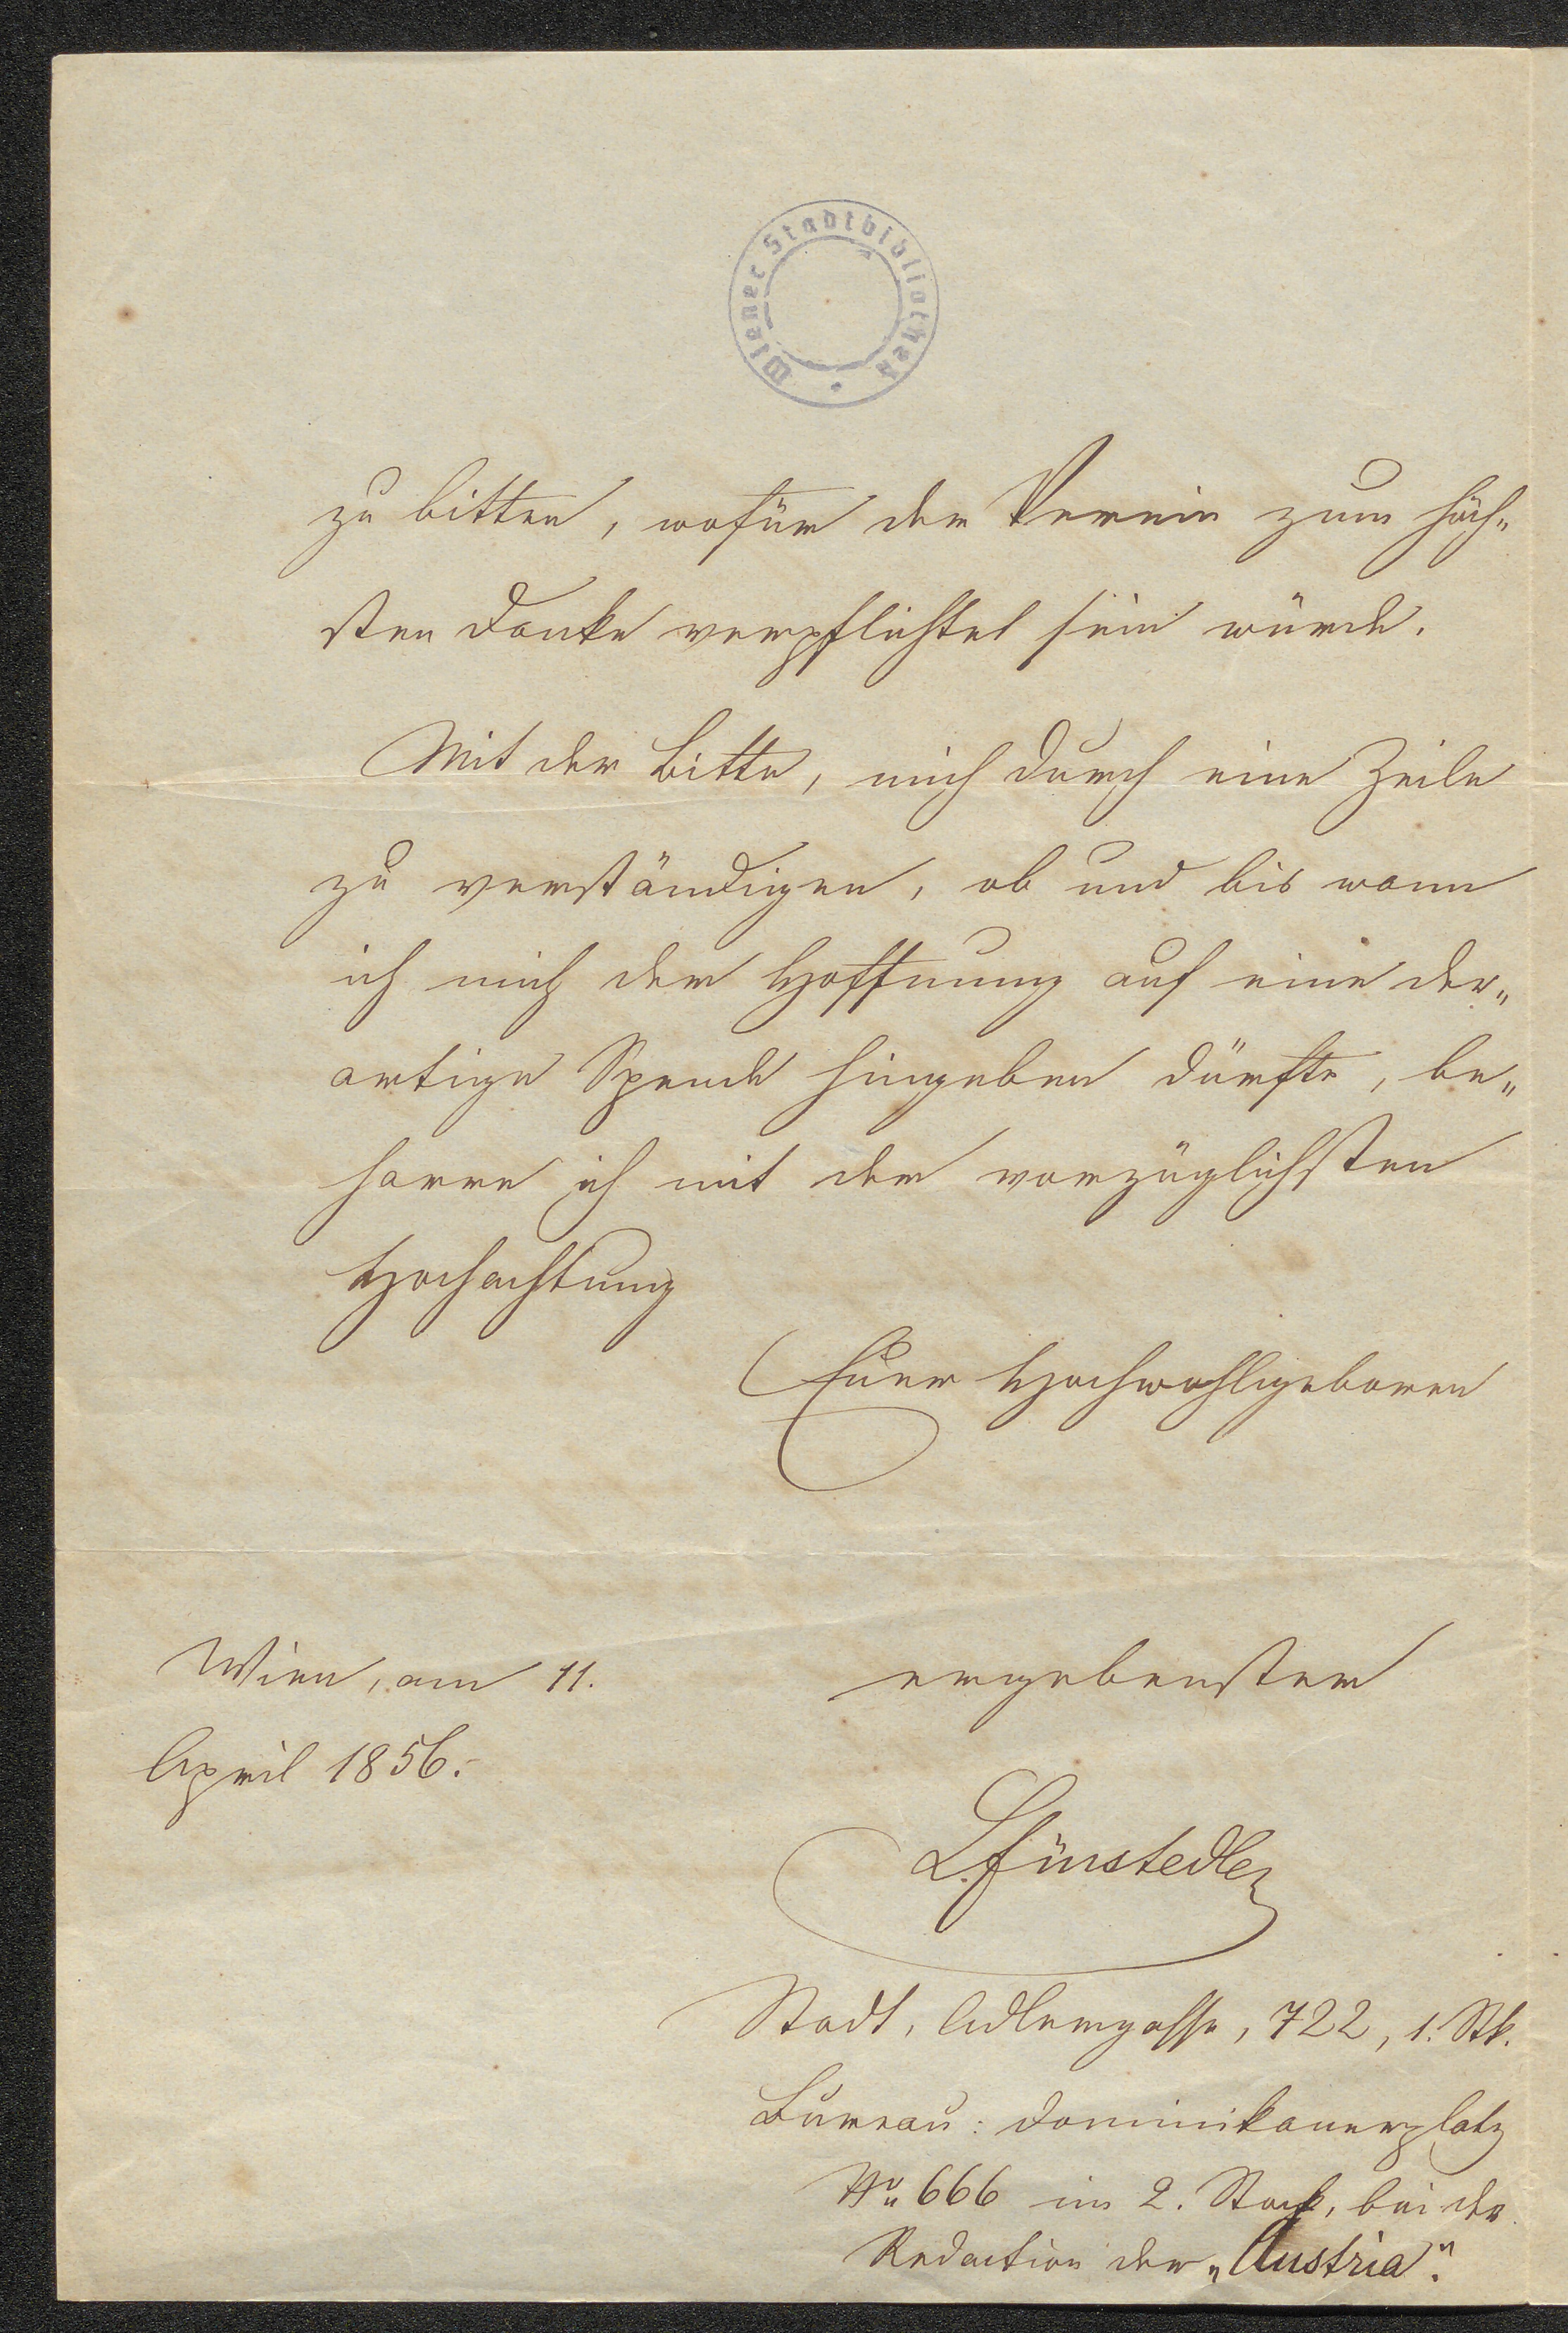 Wiener Stadtbibliothek
zu bitten, wofür der Verein zum höch„
sten Danke verpflichtet sein würde.
Mit der Bitte, mich durch eine Zeile
zu verständigen, ob und bis wann
ich mich der Hoffnung auf eine der„
artige Spende hingeben dürfte, be„
harre ich mit der vorzüglichsten
Hochachtung
Euer Hochwohlgeboren
Wien, am 11.
April 1856.
ergebenster
Stadt, Adlergasse, 722, 1. Stk.
Bureau: Dominikanerplatz
No 666 im 2. Stock, bei der
Redaction der „Austria“.